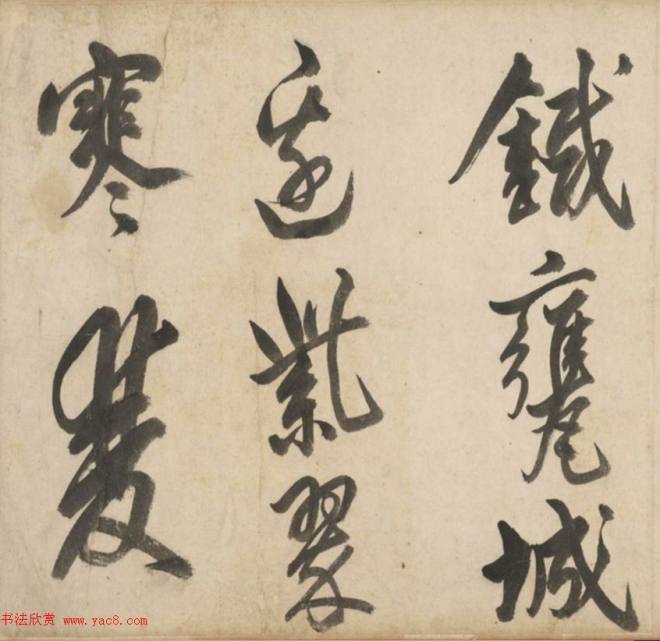 鐵甕城
邊紫翠
寒
书法欣赏 www.yac8.com